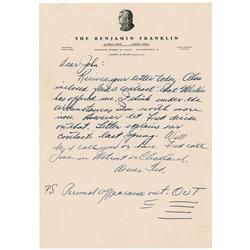 THE BENJAMIN FRANKLIN
PHILADELPHIA
Dear John:
Received your letter today. Also
inclosed find contract that
has offered me. I think under the
circumstances I'm worth more
now However let Fred decide
on that. Letter explains our
contract last Spring. Will
try & call you or have Fred call
you in Detroit or Cleveland.
As ever
P.S. Personal appearances out - OUT